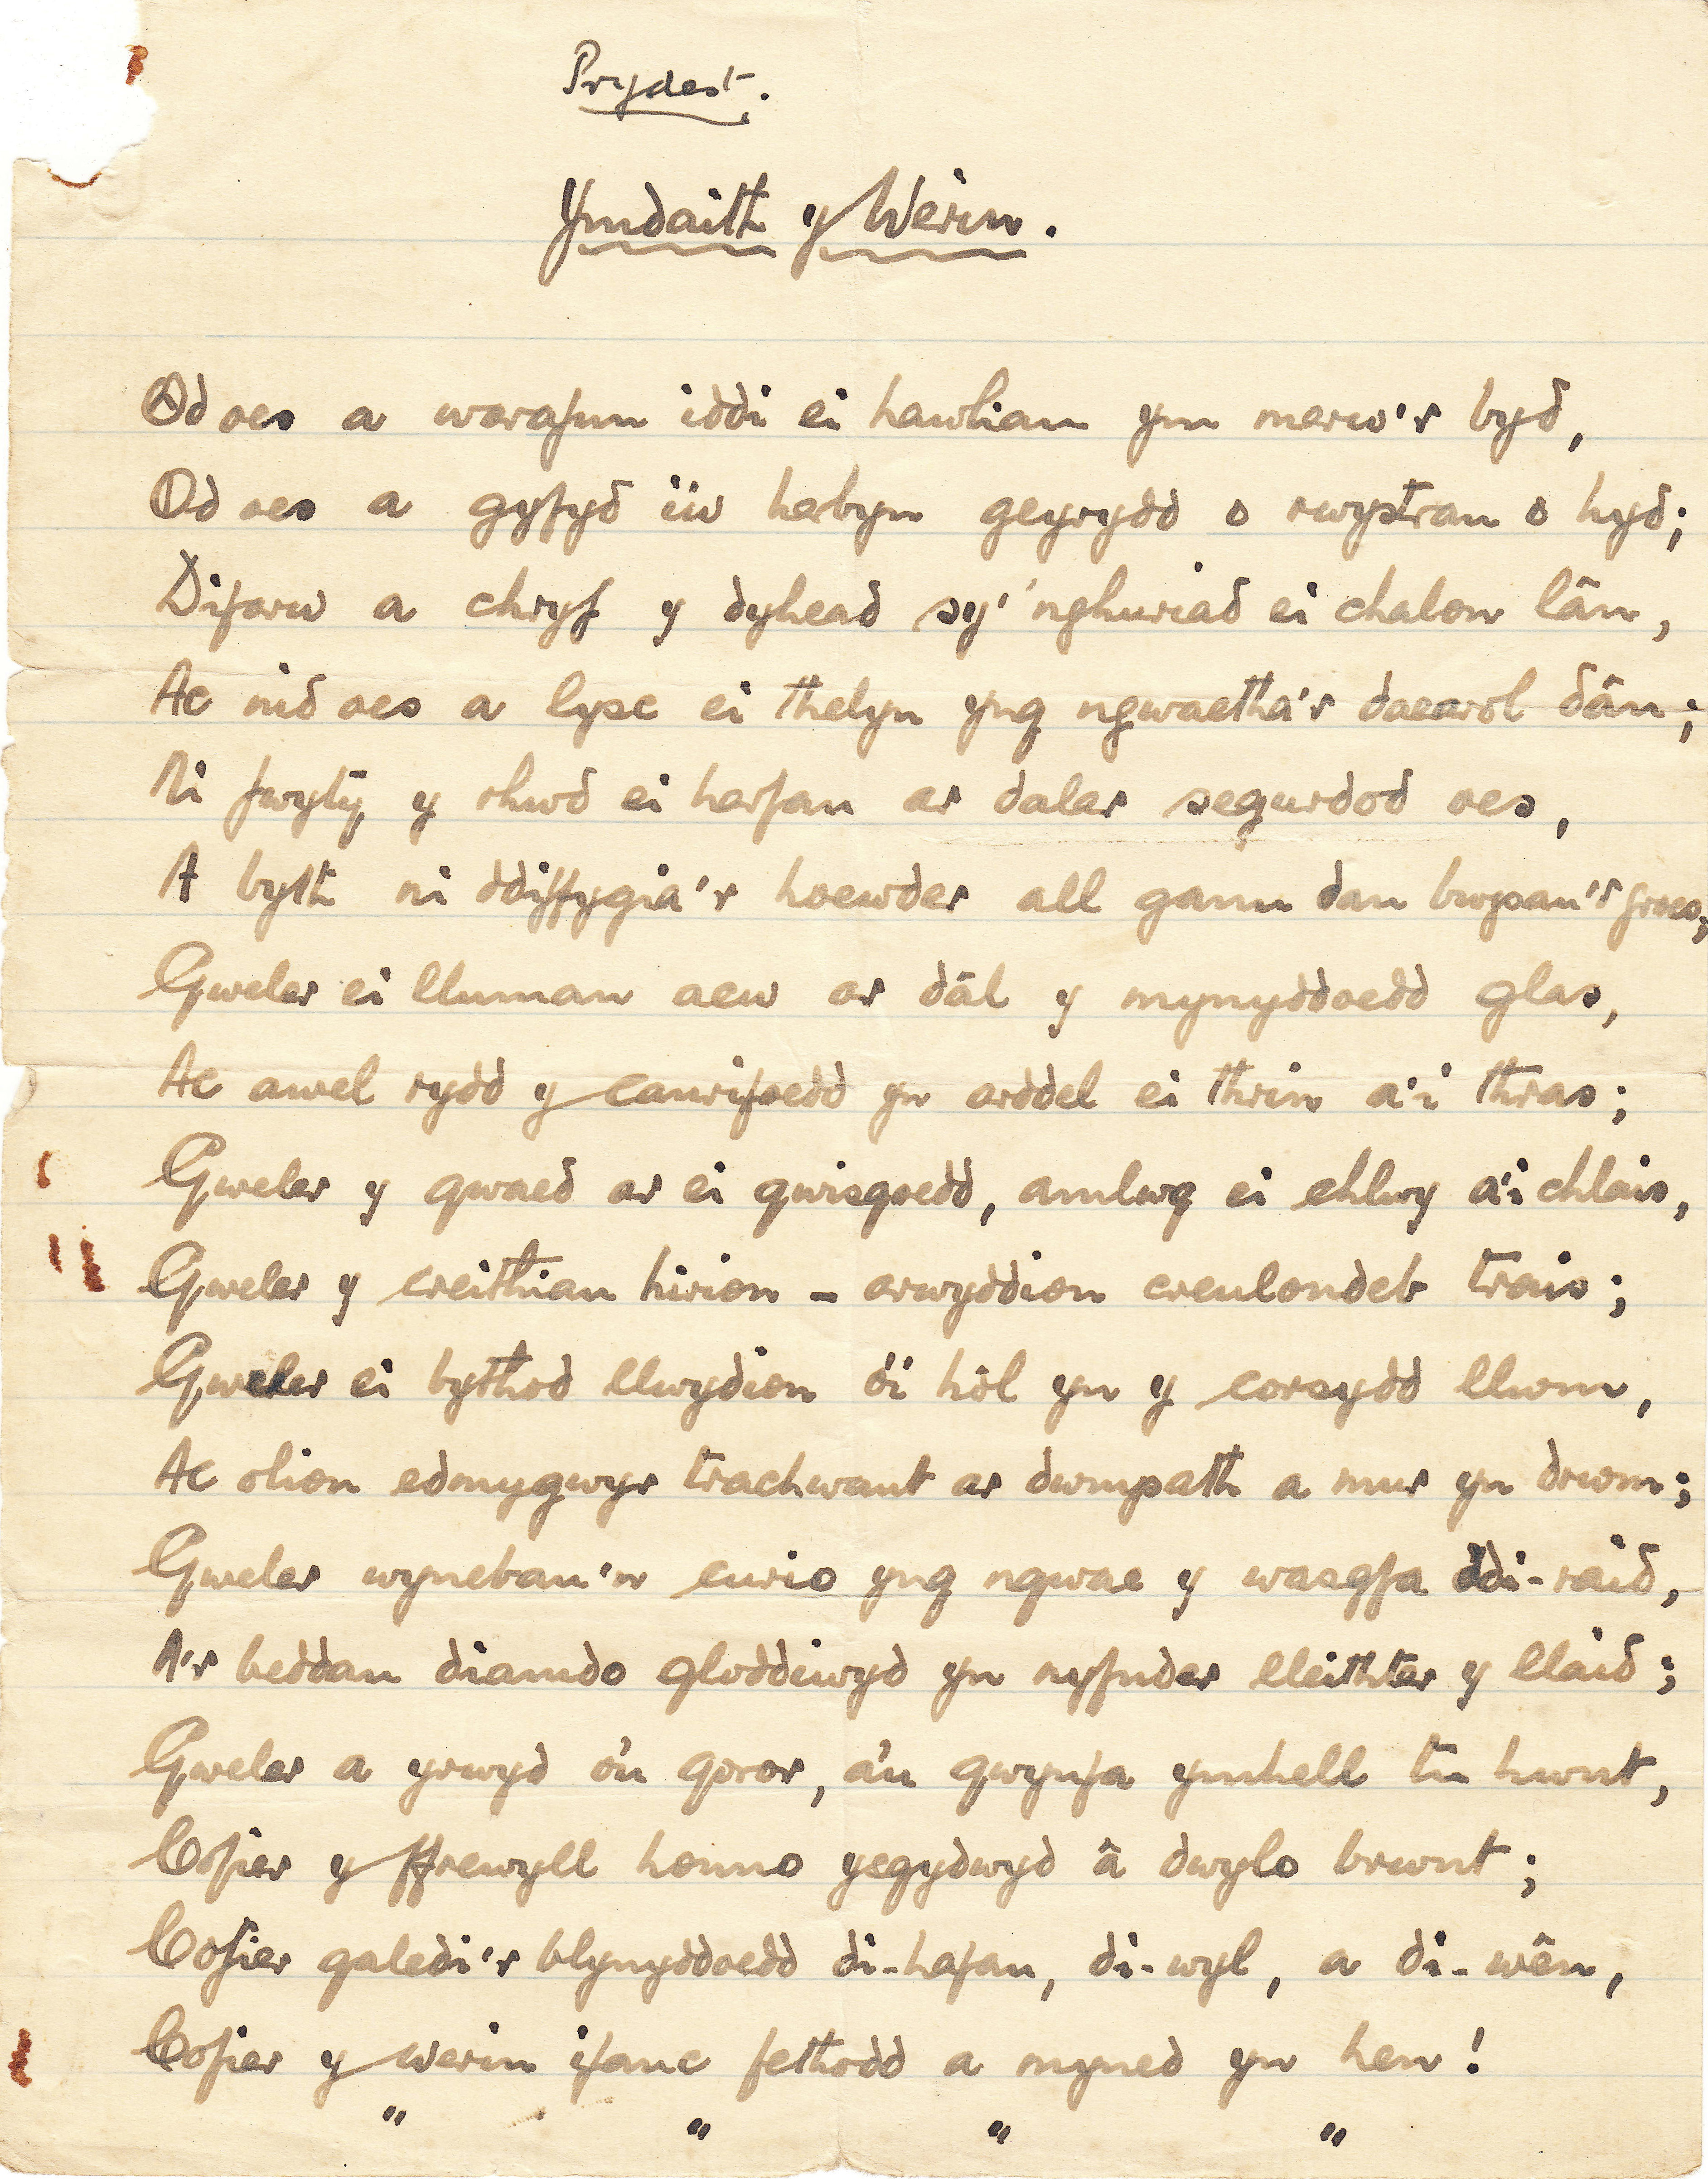 Prydest.
Ymdaith y Werin.
Od oes a warafun iddi ei hawliau ym marw'r byd,
Od oes a gyfyd i'w herbyn geyrydd o rwystrau o hyd;
Difarw a chryf y dyhead sy' 'nghuriad ei chalon lân,
Ac nid oes a lysc ei thelyn yng ngwaetha'r daearol dân;
Ni fwyty y rhwd ei harfau ar dalar segurdod oes,
A byth ni ddiffygia'r hoewder all ganu dan bwysau'r groes;
Gweler ei lluman acw ar dâl y mynyddoedd glas,
Ac awel rydd y canrifoedd yn arddel ei thrin a'i thras;
Gweler y gwaed ar ei gwisgoedd, amlwg ei chlwy a'i chlais,
Gweler y creithiau hirion - arwyddion creulondeb trais;
Gweler ei bythod llwydion o'i hôl yn y corsydd llwm,
Ac olion edmygwyr trachwant ar dwmpath a mur yn drwm;
Gweler wynebau'n curio yng ngwae y wasgfa ddi-raid,
A'r beddau diamdo gloddiwyd yn nyfnder lleithter y llaid;
Gweler a yrwyd o'u goror, a'u gwynfa ymhell tu hwnt,
Cofier y ffrewyll honno ysgydwyd â dwylo brwnt;
Cofier galedi'r blynyddoedd di-hafau, di-wyl, a di-wên,
Cofier y werin ifanc fethodd a myned yn hen!
" " " "